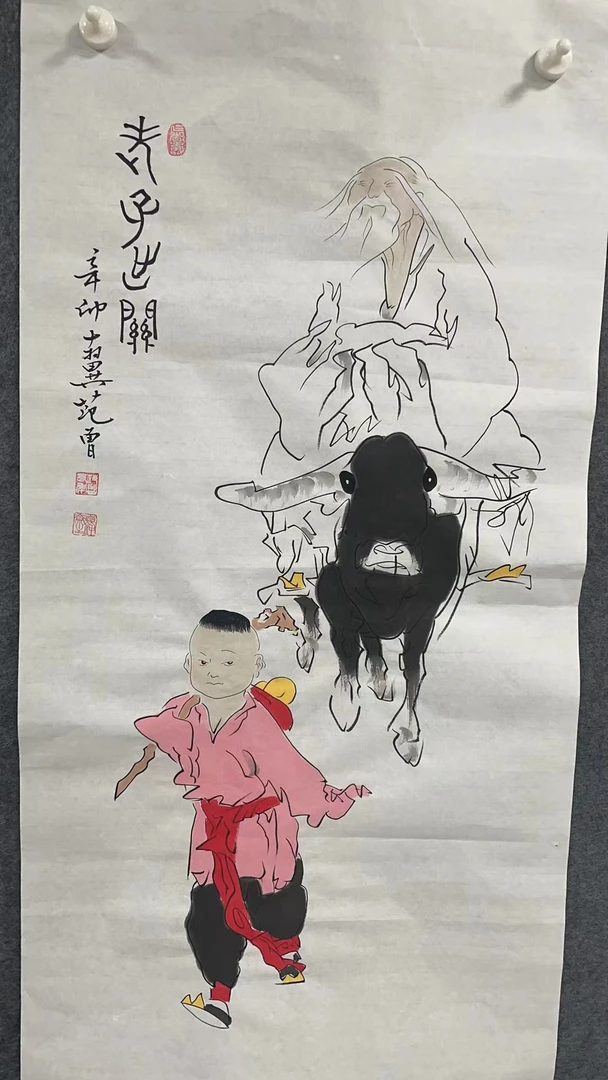 老子出關
辛卯十翼范曾